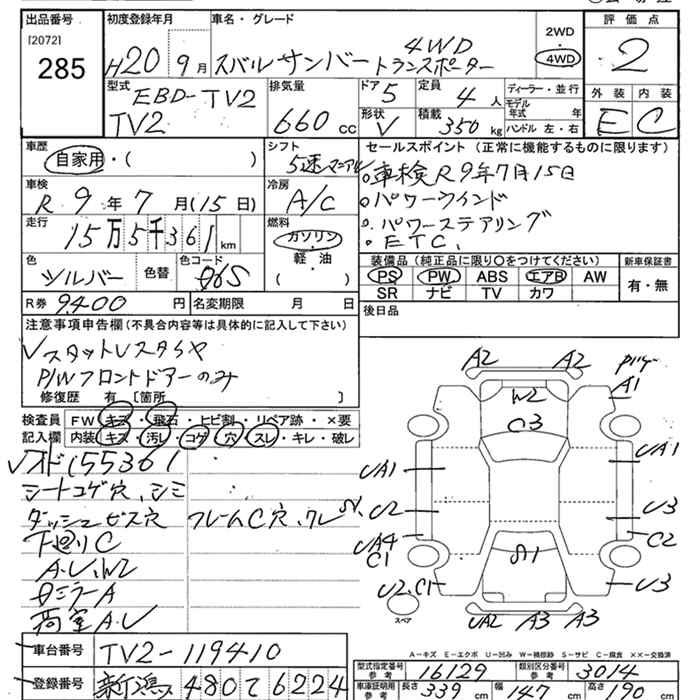 出品番号
[2072]
285
初度登録年月
H20 9月
車名・グレード
スバル サンバー 4WD トランスポーター
2WD・4WD
評価点
2
型式
EBD-TV2
TV2
排気量
660 cc
ドア 5
定員 4 人
形状 V
積載 350 kg
ディーラー・並行
モデル年式 年
ハンドル 左・右
外装 内装
E C
車歴
自家用・( )
シフト
5速マニアル
車検
R 9 年 7 月(15 日)
冷房
A/C
走行
15万5千361 km
燃料
ガソリン・軽油
( )
色
シルバー
色替
色コード
06S
R券 9400 円
名変期限 月 日
セールスポイント (正常に機能するものに限ります)
。車検R9年7月15日
。パワーウインド
。パワーステアリング
。ETC、
装備品 (純正品に限り○をつけてください)
PS PW ABS エアB AW
SR ナビ TV カワ
新車保証書
有・無
後日品
注意事項申告欄 (不具合内容等は具体的に記入して下さい)
P/Wフロントドアーのみ
修復歴 有 〔箇所 〕
検査員記入欄
FW キズ・飛石・ヒビ割・リペア跡・×要
内装 キズ・汚レ・コゲ・穴・スレ・キレ・破レ
155361
シートコゲ穴、シミ
ダッシュビス穴 フレームC穴、クレ
下廻りC
A・U、W2
ミラーA
荷室A・U
車台番号 TV2-119410
登録番号 新潟 480て6224
A2 A2
A1
W2
C3
UA1 UA1
U2 U3
UA4 C2
C1
S1
U2、C1 U3
スペア
UA2 A3 A3
A-キズ E-エクボ U-凹み W-補修跡 S-サビ C-腐食 ××-交換済
型式指定番号 参考 16129
類別区分番号 参考 3014
車庫証明用 参考 長さ 339 cm 幅 147 cm 高さ 190 cm